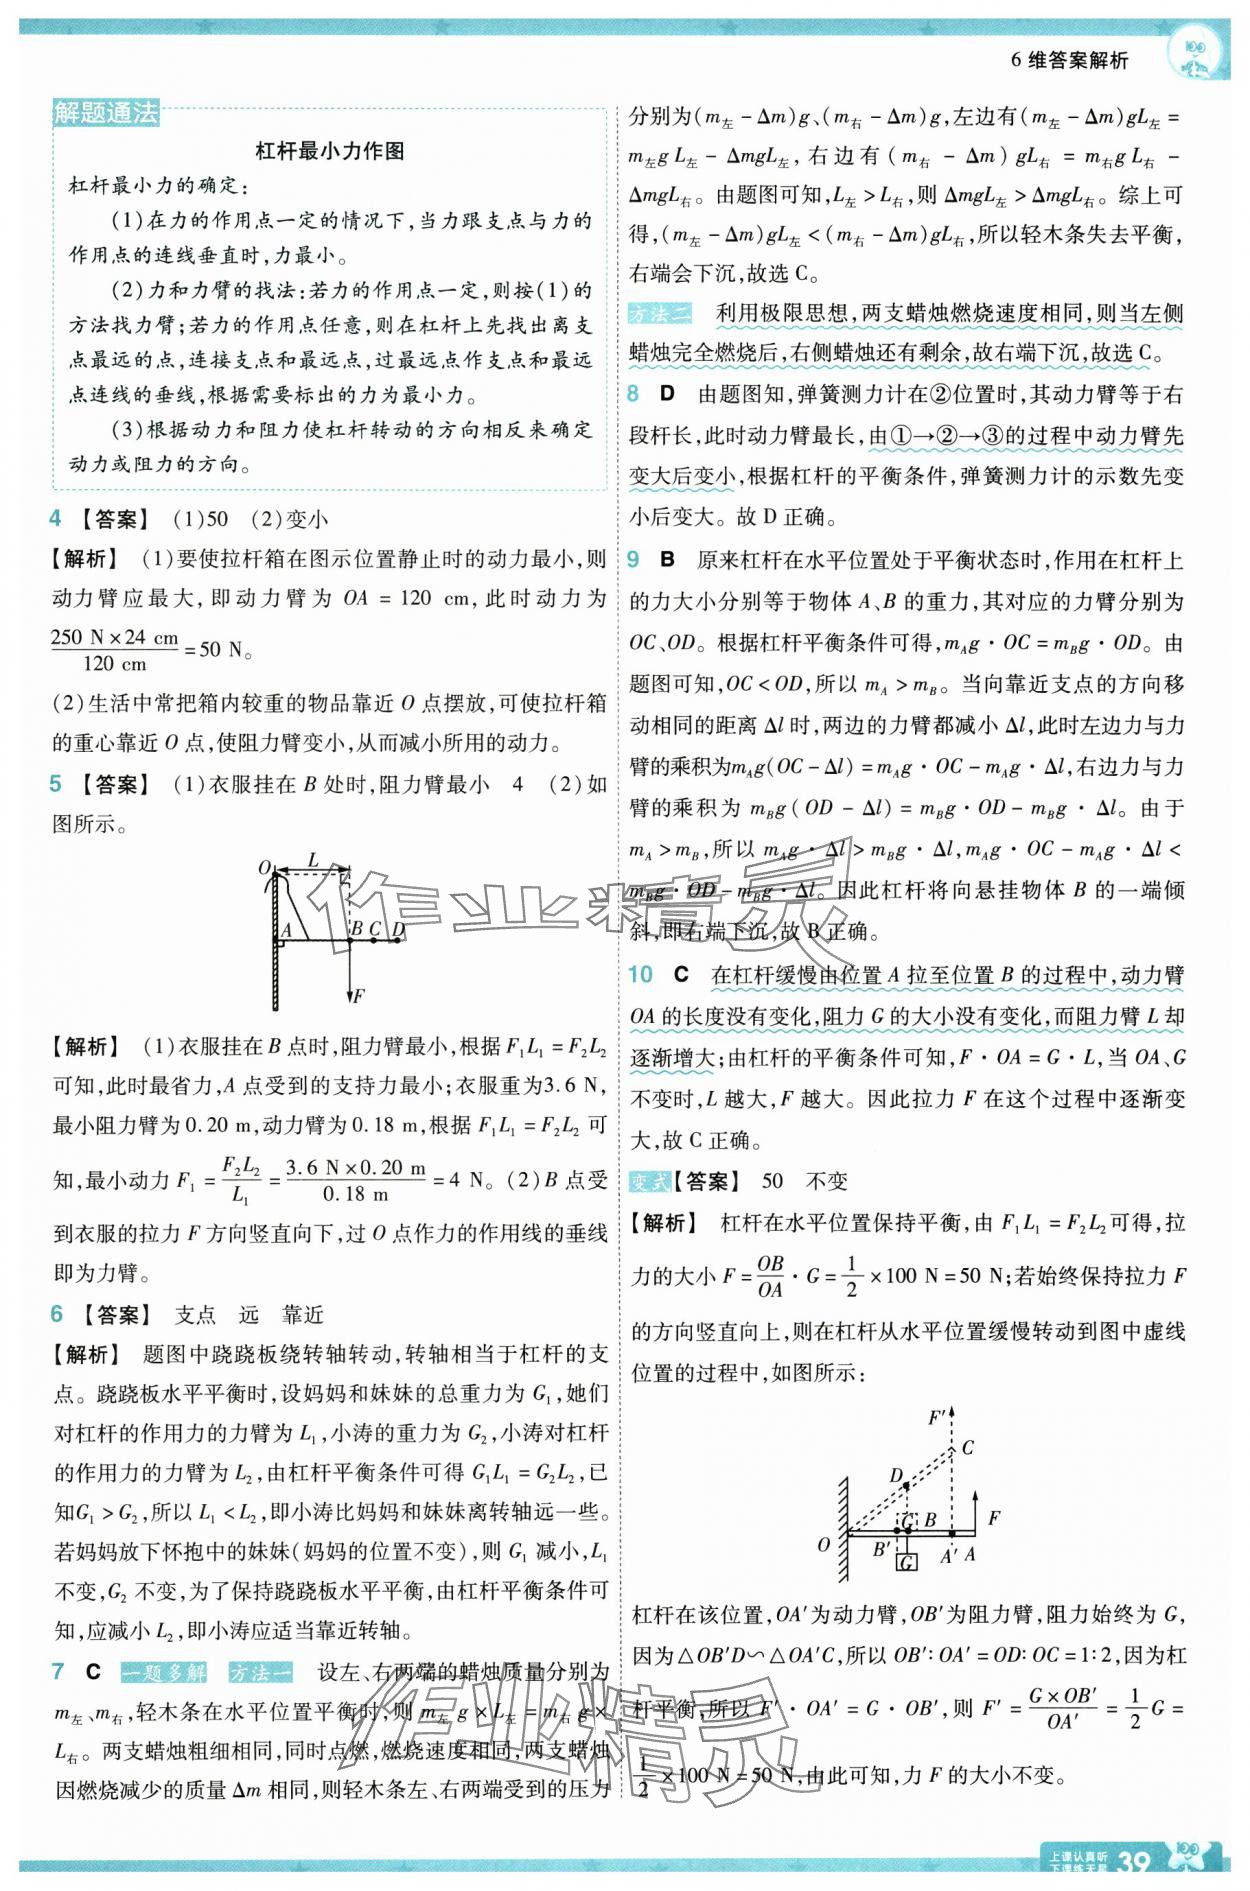 6 维答案解析
解题通法
杠杆最小力作图
杠杆最小力的确定:
(1)在力的作用点一定的情况下,当力跟支点与力的
作用点的连线垂直时,力最小。
(2)力和力臂的找法:若力的作用点一定,则按(1)的
方法找力臂;若力的作用点任意,则在杠杆上先找出离支
点最远的点,连接支点和最远点,过最远点作支点和最远
点连线的垂线,根据需要标出的力为最小力。
(3)根据动力和阻力使杠杆转动的方向相反来确定
动力或阻力的方向。
4 【答案】 (1)50 (2)变小
【解析】 (1)要使拉杆箱在图示位置静止时的动力最小,则
动力臂应最大,即动力臂为 OA = 120 cm,此时动力为
250 N×24 cm/120 cm = 50 N。
(2)生活中常把箱内较重的物品靠近 O 点摆放,可使拉杆箱
的重心靠近 O 点,使阻力臂变小,从而减小所用的动力。
5 【答案】 (1)衣服挂在 B 处时,阻力臂最小 4 (2)如
图所示。
O L
A B C D
F
【解析】 (1)衣服挂在 B 点时,阻力臂最小,根据 F₁L₁ = F₂L₂
可知,此时最省力,A 点受到的支持力最小;衣服重为3.6 N,
最小阻力臂为0.20 m,动力臂为0.18 m,根据 F₁L₁ = F₂L₂ 可
知,最小动力 F₁ = F₂L₂/L₁ = 3.6 N×0.20 m/0.18 m = 4 N。(2)B 点受
到衣服的拉力 F 方向竖直向下,过 O 点作力的作用线的垂线
即为力臂。
6 【答案】 支点 远 靠近
【解析】 题图中跷跷板绕转轴转动,转轴相当于杠杆的支
点。跷跷板水平平衡时,设妈妈和妹妹的总重力为 G₁,她们
对杠杆的作用力的力臂为 L₁,小涛的重力为 G₂,小涛对杠杆
的作用力的力臂为 L₂,由杠杆平衡条件可得 G₁L₁ = G₂L₂,已
知G₁ > G₂,所以 L₁ < L₂,即小涛比妈妈和妹妹离转轴远一些。
若妈妈放下怀抱中的妹妹(妈妈的位置不变),则 G₁ 减小,L₁
不变,G₂ 不变,为了保持跷跷板水平平衡,由杠杆平衡条件可
知,应减小 L₂,即小涛应适当靠近转轴。
7 C 一题多解 方法一 设左、右两端的蜡烛质量分别为
m左、m右,轻木条在水平位置平衡时,则 m左 g×L左 = m右 g×
L右。两支蜡烛粗细相同,同时点燃,燃烧速度相同,两支蜡烛
因燃烧减少的质量 Δm 相同,则轻木条左、右两端受到的压力
分别为(m左 − Δm)g、(m右 − Δm)g,左边有(m左 − Δm)gL左 =
m左g L左 − ΔmgL左,右边有(m右 − Δm) gL右 = m右g L右 −
ΔmgL右。由题图可知,L左 > L右,则 ΔmgL左 > ΔmgL右。综上可
得,(m左 − Δm)gL左 < (m右 − Δm)gL右,所以轻木条失去平衡,
右端会下沉,故选 C。
方法二 利用极限思想,两支蜡烛燃烧速度相同,则当左侧
蜡烛完全燃烧后,右侧蜡烛还有剩余,故右端下沉,故选 C。
8 D 由题图知,弹簧测力计在②位置时,其动力臂等于右
段杆长,此时动力臂最长,由①→②→③的过程中动力臂先
变大后变小,根据杠杆的平衡条件,弹簧测力计的示数先变
小后变大。故 D 正确。
9 B 原来杠杆在水平位置处于平衡状态时,作用在杠杆上
的力大小分别等于物体 A、B 的重力,其对应的力臂分别为
OC、OD。根据杠杆平衡条件可得,mAg · OC = mBg · OD。由
题图可知,OC < OD,所以 mA > mB。当向靠近支点的方向移
动相同的距离 Δl 时,两边的力臂都减小 Δl,此时左边力与力
臂的乘积为mAg(OC − Δl) = mAg · OC − mAg · Δl,右边力与力
臂的乘积为 mBg(OD − Δl) = mBg · OD − mBg · Δl。由于
mA > mB,所以 mAg · Δl > mBg · Δl,mAg · OC − mAg · Δl <
mBg · OD − mBg · Δl。因此杠杆将向悬挂物体 B 的一端倾
斜,即右端下沉,故 B 正确。
10 C 在杠杆缓慢由位置 A 拉至位置 B 的过程中,动力臂
OA 的长度没有变化,阻力 G 的大小没有变化,而阻力臂 L 却
逐渐增大;由杠杆的平衡条件可知,F · OA = G · L,当 OA、G
不变时,L 越大,F 越大。因此拉力 F 在这个过程中逐渐变
大,故 C 正确。
变式【答案】 50 不变
【解析】 杠杆在水平位置保持平衡,由 F₁L₁ = F₂L₂可得,拉
力的大小 F = OB/OA · G = 1/2 × 100 N = 50 N;若始终保持拉力 F
的方向竖直向上,则在杠杆从水平位置缓慢转动到图中虚线
位置的过程中,如图所示:
F′
C
D
G B F
O B′ G A′ A
杠杆在该位置,OA′为动力臂,OB′为阻力臂,阻力始终为 G,
因为△OB′D∽△OA′C,所以 OB′∶OA′ = OD∶OC = 1∶2,因为杠
杆平衡,所以 F′ · OA′ = G · OB′,则 F′ = G × OB′/OA′ = 1/2 G =
1/2 × 100 N = 50 N,由此可知,力 F 的大小不变。
作业精灵
作业精灵
上课认真听
下课练天星
39